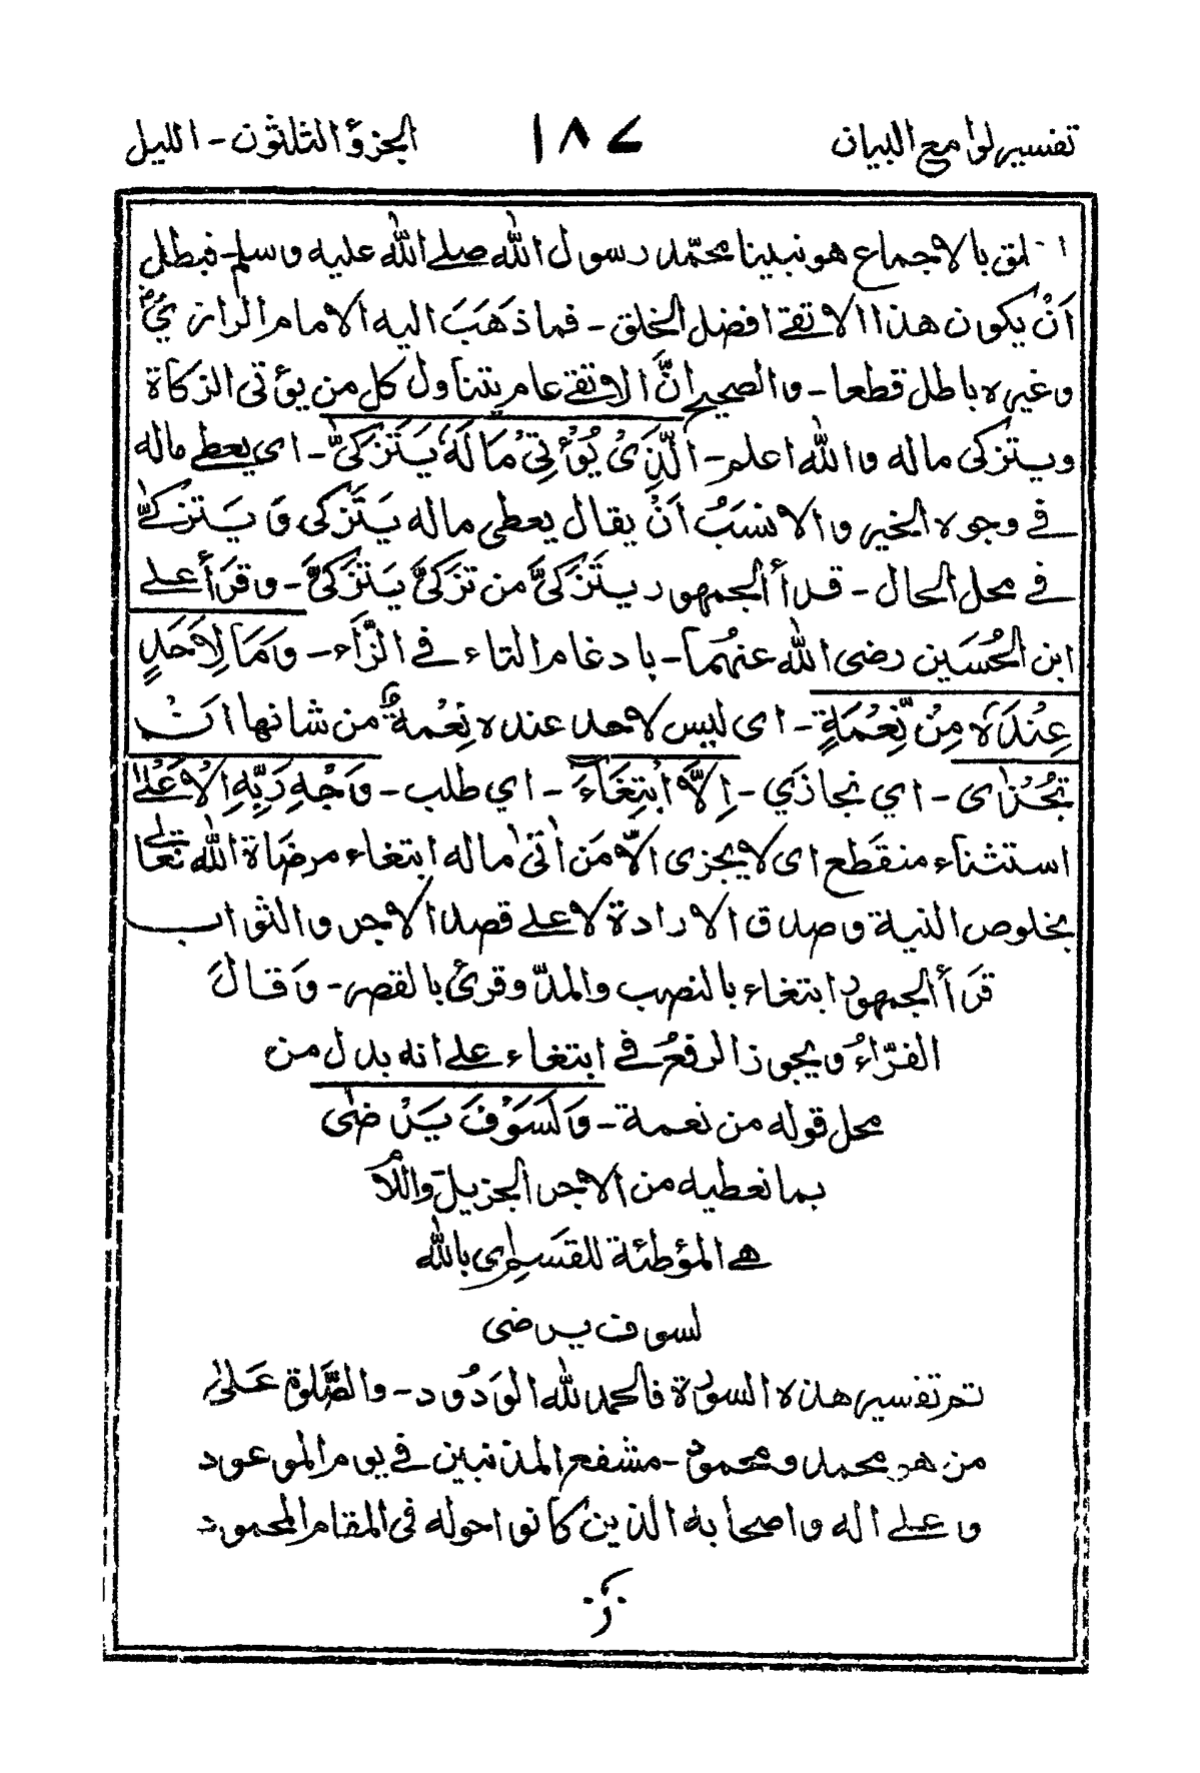 تفسير لوامع البيان ١٨٧ الجزؤ الثلثون - الليل
لق بالاجماع هو نبينا محمّد رسول الله صلے الله عليه وسلم - فبطل
اَنْ يكون هذا الاتقے افضل الخلق - فما ذهَبَ اليه الامام الرازيؒ
وغيره باطل قطعا - والصحيح انَّ الاتقے عام يتناول كل من يؤتى الزكاة
ويتزكى ماله والله اعلم - الَّذِىْ يُؤْتِىْ مَالَهٗ يَتَزَكّٰى - اى يعطے ماله
فے وجوه الخير والانسَبُ اَنْ يقال يعطى ماله يَتَزَكى وَ يَتزكّے
فے محل الحال - قرأ الجمهور يَتَزَكىّٰ من تزَكىّٰ يَتَزَكىّٰ - وقرَأ علے
ابن الحُسَين رضى الله عنهُما - بادغام التاء فے الزَّاء - وَمَا لِاَحَدٍ
عِنْدَهٗ مِنْ نِّعْمَةٍ - اى ليس لاحد عنده نِعْمةٌ من شانها ان
تُجْزٰاى - اي نجازَي - اِلَّا ابْتِغَآءَ - اي طلب - وَجْهِ رَبِّهِ الْاَعْلٰے
استثناء منقَطع اى لا يجزى الاّ مَن اٰتىٰ ماله ابتغاء مرضَاة الله تعالے
بخلوص النية وصدق الارادة لا علے قصد الاجر والثواب
قرَأ الجمهور ابتغاء بالنصب والمدّ وقرئ بالقصر - وَقال
الفرّاءُ ويجوز الرفعُ فے ابتغاء علے انه بدل من
محل قوله من نعمة - وَلَسَوْفَ يَرْضٰى
بما نعطيه من الاجر الجزيل واللّام
هے المؤطئة للقسَم اى بالله
لسوف يرضى
تم تفسير هذه السورة فالحمد لله الوَدُود - والصَّلوة عَلىٰ
من هو محمد ومحمود - مشفع المذنبين فے يوم الموعود
وعلے اله واصحابه الذين كانوا حوله فى المقام المحمود